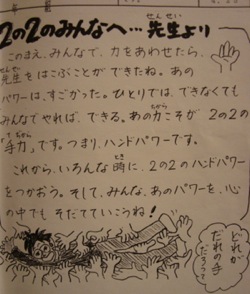 2の2のみんなへ…先生より
このまえ、みんなで、力をあわせたら、
先生をはこぶことができたね。あの
パワーは、すごかった。ひとりでは、できなくても
みんなでやれば、できる。あの力こそが 2の2の
「手力」です。つまり、ハンドパワーです。
これから、いろんな時に、2の2のハンドパワー
をつかおう。そして、みんな、あのパワーを、心
の中でも そだてていこうね!
どれが
だれの手
だろうって